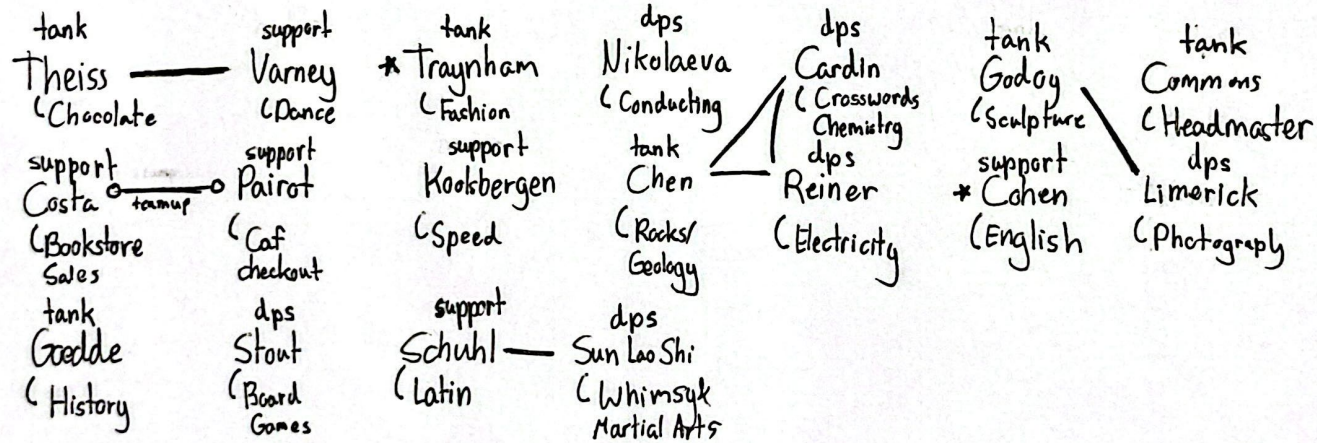 tank
Theiss
Chocolate
support
Varney
Dance
tank
* Traynham
Fashion
dps
Nikolaeva
Conducting
dps
Cardin
Crosswords
Chemistry
tank
Godoy
Sculpture
tank
Commons
Headmaster
support
Costa
Bookstore
Sales
teamup
support
Pairot
Caf
checkout
support
Koolsbergen
Speed
tank
Chen
Rocks/
Geology
dps
Reiner
Electricity
support
* Cohen
English
dps
Limerick
Photograply
tank
Goedde
History
dps
Stout
Board
Games
support
Schuhl
Latin
dps
Sun Lao Shi
Whimsyk
Martial Arts